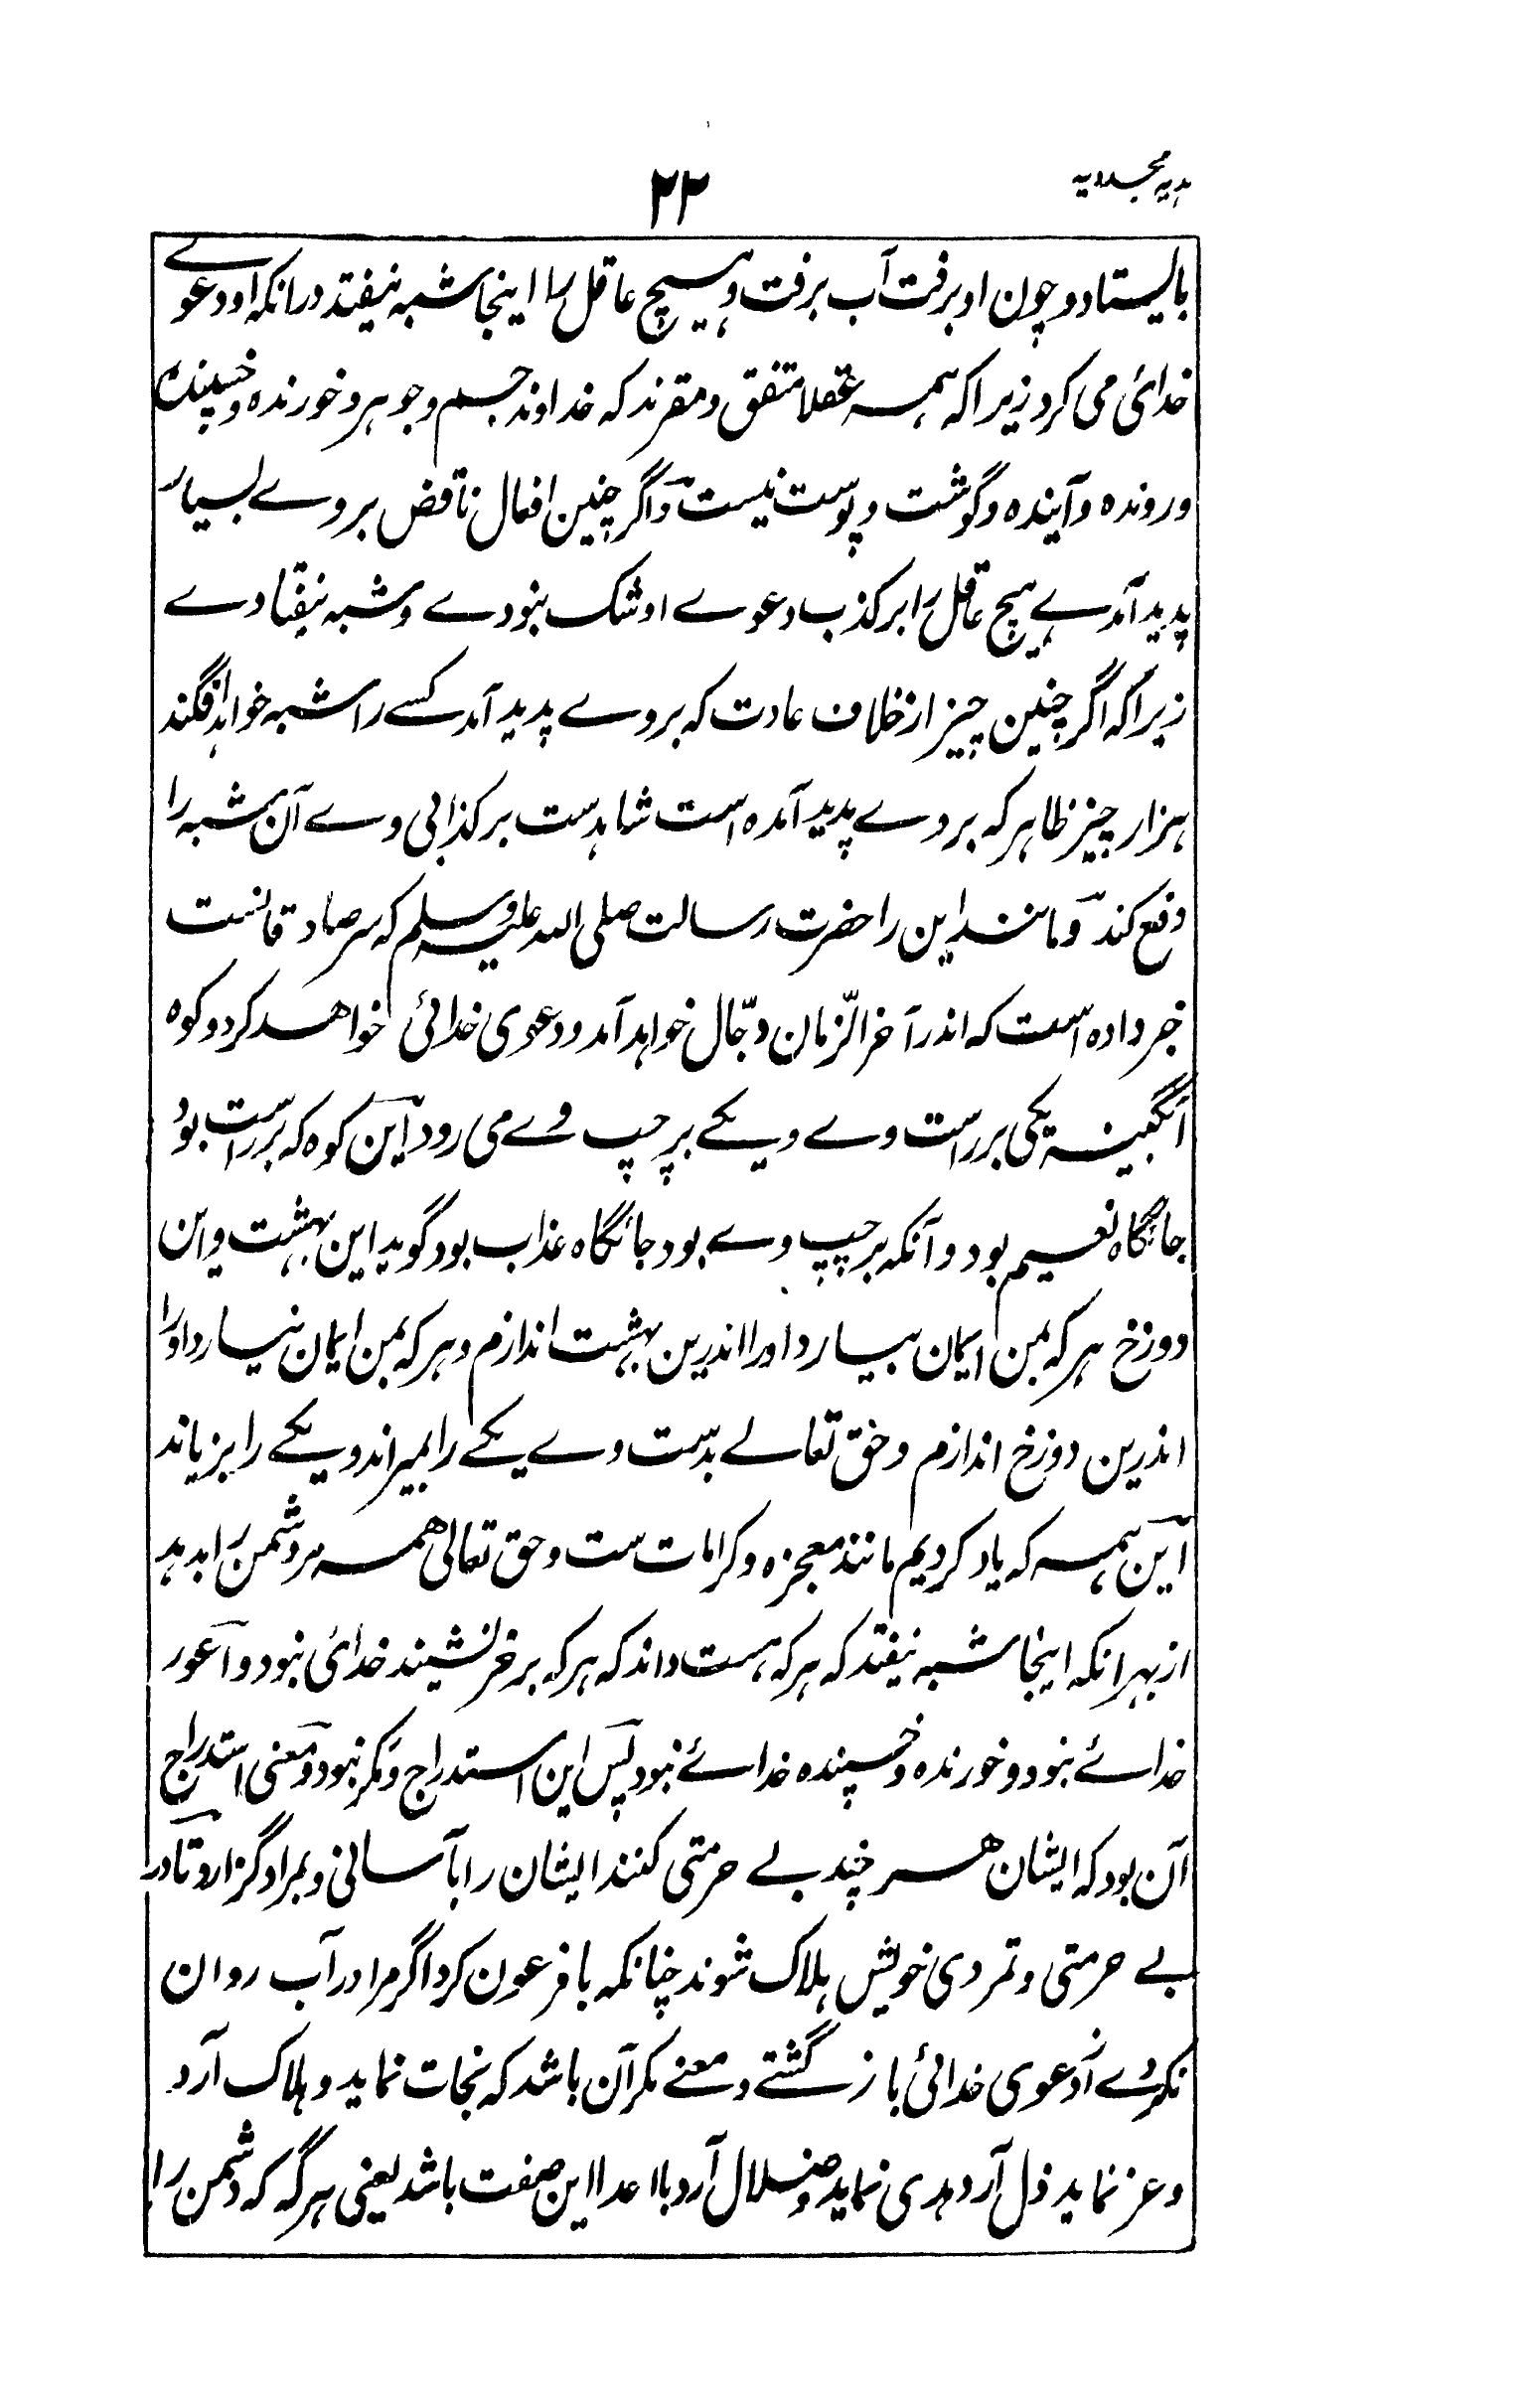 ہدیہ مجددیہ
۲۲
بالیستاد و چون او برفت آب برفت و ہیچ عاقل را اینجا شبہ نیفتد درانکہ او دعوے
خدائی می کرد زیراکہ ہمہ عقلا متفق و مقرند کہ خداوند جسم و جوہر و خورندہ و خسپندہ
و روندہ و آیندہ و گوشت و پوست نیست و اگر چنین افعال ناقض بروے بسیار
پدید آمدے ہیچ عاقل را بر کذب دعوے او شک نبودے و شبہ نیفتادے
زیراکہ اگر چنین چیز از خلاف عادت کہ بروے پدید آمد کسے را شبہ خواہد افگند
ہزار چیز ظاہر کہ بروے پدید آمدہ است شاہدست بر کذابی وے آن شبہ را
دفع کند و مانند این را حضرت رسالت صلی اللہ علیہ وسلم کہ سر صادقانست
خبر دادہ است کہ اندر آخر الزّمان دجّال خواہد آمد و دعوی خدائی خواهد کرد و کوہ
آنگبینہ یکی بر راست وے و یکے بر چپ وے می رود این کوہ کہ بر راست بود
جائگاہ نعیم بود و آنکہ بر چپ وے بود جائگاہ عذاب بود گوید این بہشت و این
دوزخ ہر کہ بمن ایمان بیارد او را اندرین بہشت اندازم و ہر کہ بمن ایمان نیارد او را
اندرین دوزخ اندازم و حق تعالے بدست وے یکے را بمیراند و یکے را بزیاند
این ہمہ کہ یاد کردیم مانند معجزہ و کرامات ست و حق تعالی همہ مر دشمن را بدہد
از بہر انکہ اینجا شبہ نیفتد کہ ہر کہ ہست داند کہ ہر کہ بر خر نشیند خدائی نبود و اعور
خدائے نبود و خورندہ و خسپندہ خدائے نبود پس این استدراج و مکر نبود و معنی استدراج
آن بود کہ ایشان هر چند بے حرمتی کنند ایشان را بآسانی و بمراد گزارد تا در
بے حرمتی و تمردی خویش ہلاک شوند چنانکہ با فرعون کرد اگر مرا در آب روان
نکردے از دعوی خدائی باز گشتے و معنے مکر آن باشد کہ نجات نماید و ہلاک آرد
و عز نماید ذل آرد و ہدی نماید و ضلال آرد با اعدا این صفت باشد یعنی ہر گہ کہ دشمن را